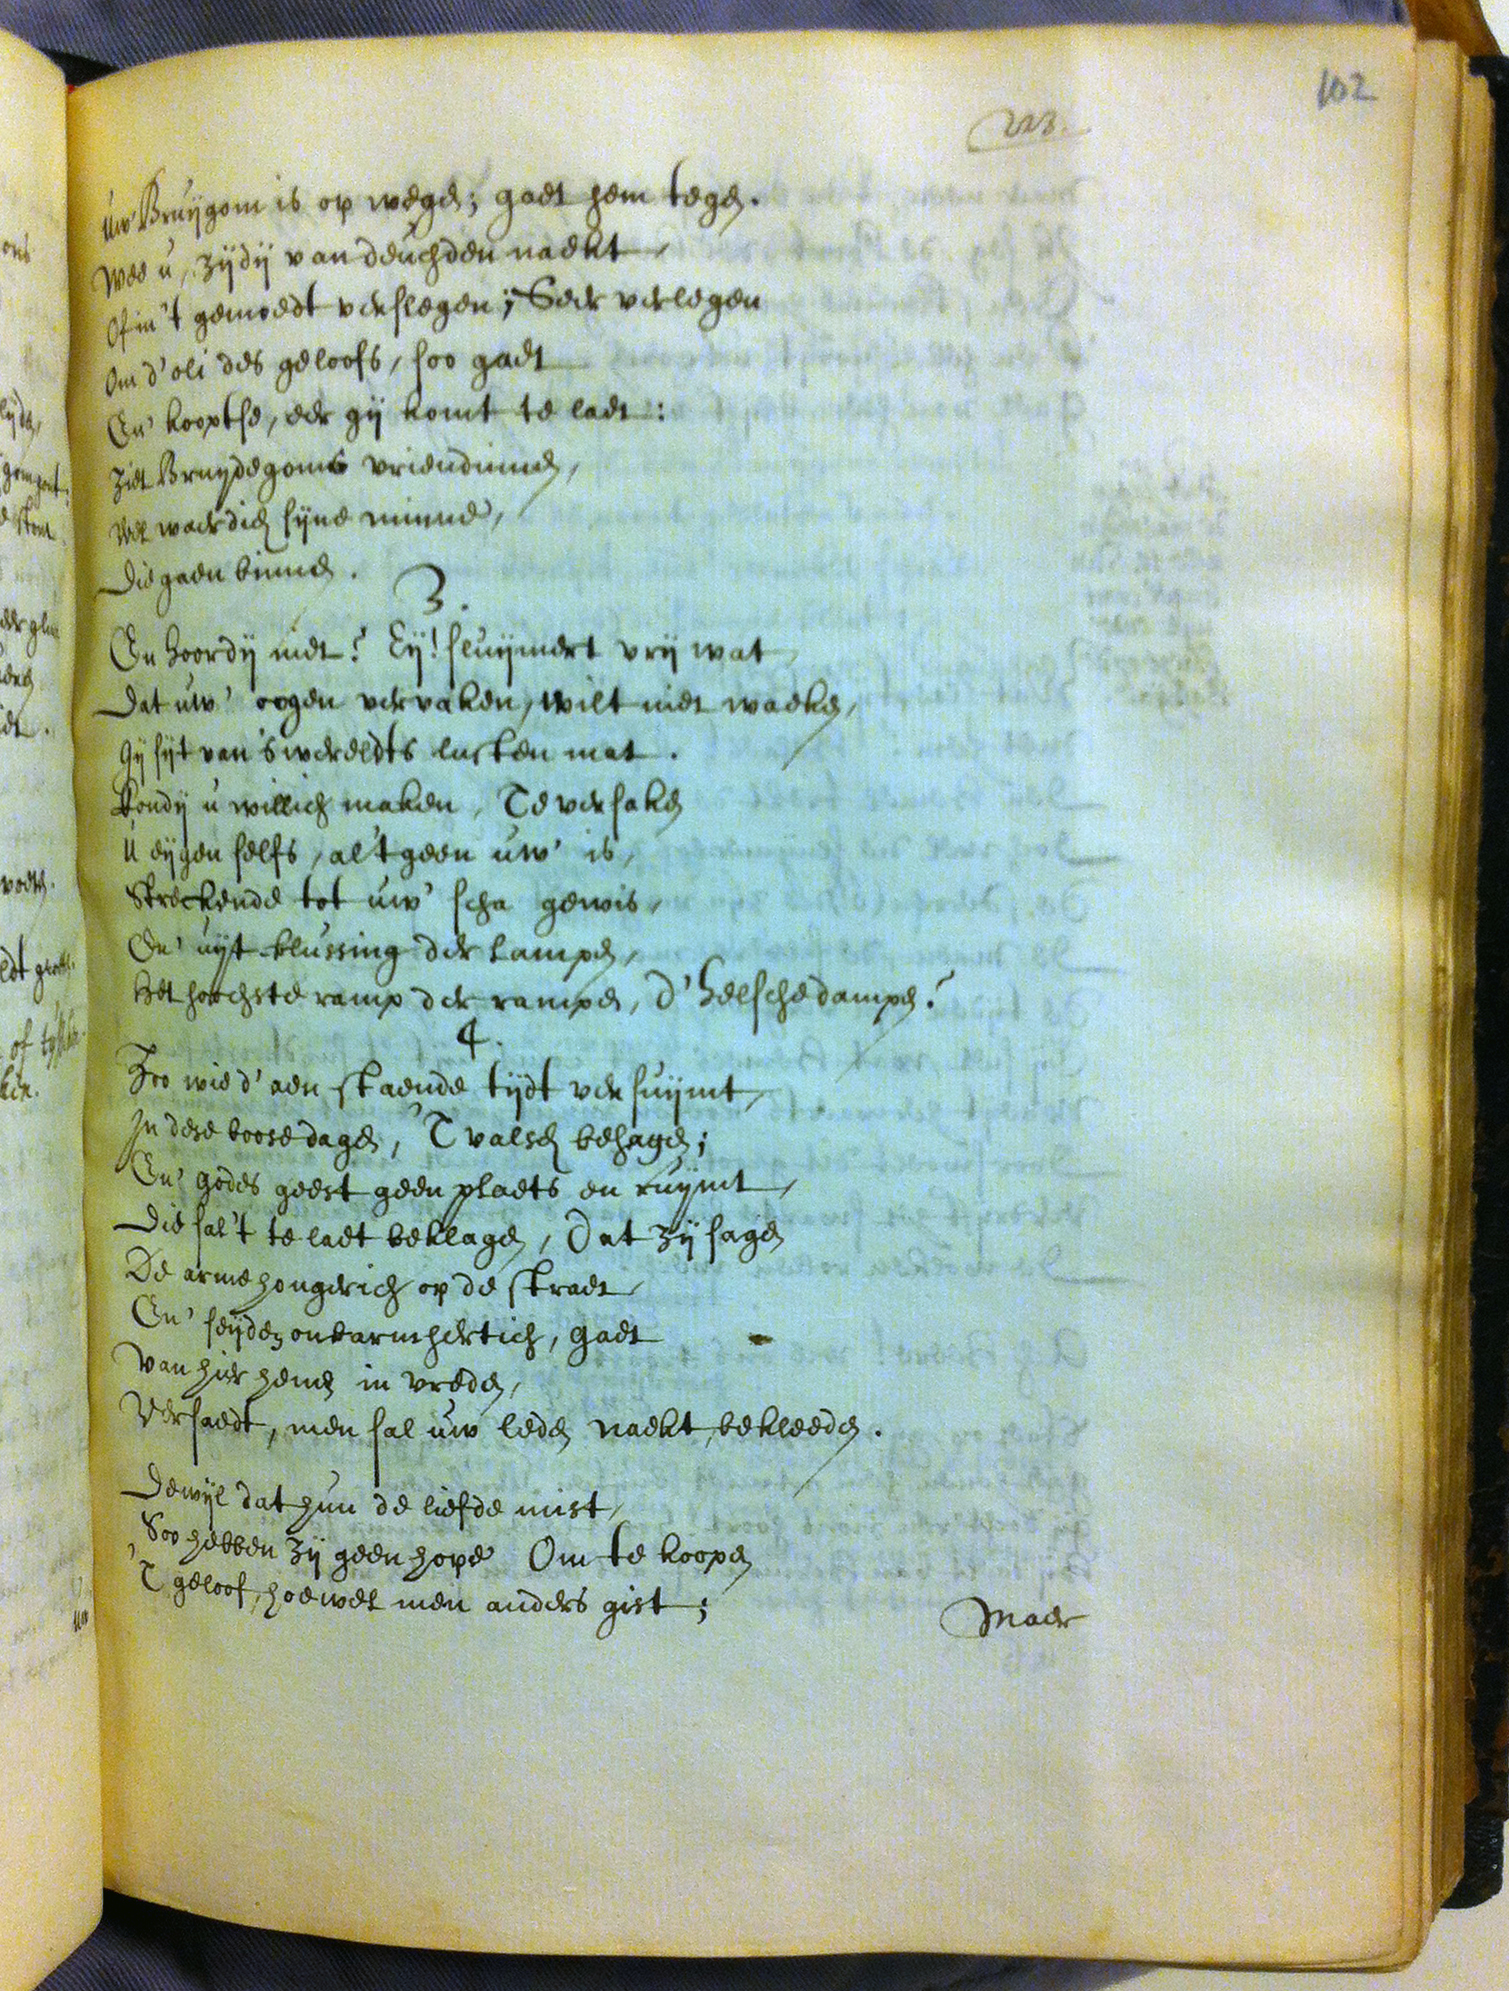 102
223.
Uw' Bruijgom is op wegen; gaet hem tegen.
Wee u, zijdij van deuchden naekt,
Of in 't gemoedt verslegen; Seer verlegen
Om d'oli des geloofs, soo gaet
En' kooptse, eer gij komt te laet:
Ziet Bruijdegoms vriendinnen,
Wel waerdich sijne minne,
Die gaen binnen.
3.
En hoordij niet? Eij! sluijmert vrij wat
Dat uw' oogen vervaken, wilt niet waeken,
Gij sijt van 's wereldts lusten mat.
Kondij u willich maken, Te versaken
U eijgen selfs, al 't geen uw' is,
Streckende tot uw' scha gewis,
En' uijt-blussing der Lampen,
Het hoochste ramp der rampen, d'helsche dampen?
4.
Zoo wie d' aen staende tijdt versuijmt,
In dese boose dagen, 'T valsch behagen;
En' Godes geest geen plaets en ruijmt,
Die sal 't te laet beklagen, Dat zij sagen
De arme hongerich op de straet,
En' seijden onbarmhertich, gaet
Van hier henen in vreden,
Versaedt, men sal uw leden naekt, bekleeden.
Dewijl dat hun de liefde mist,
Soo hebben zij geen hope Om te koopen
'T geloof, hoewel men anders gist;
Maer